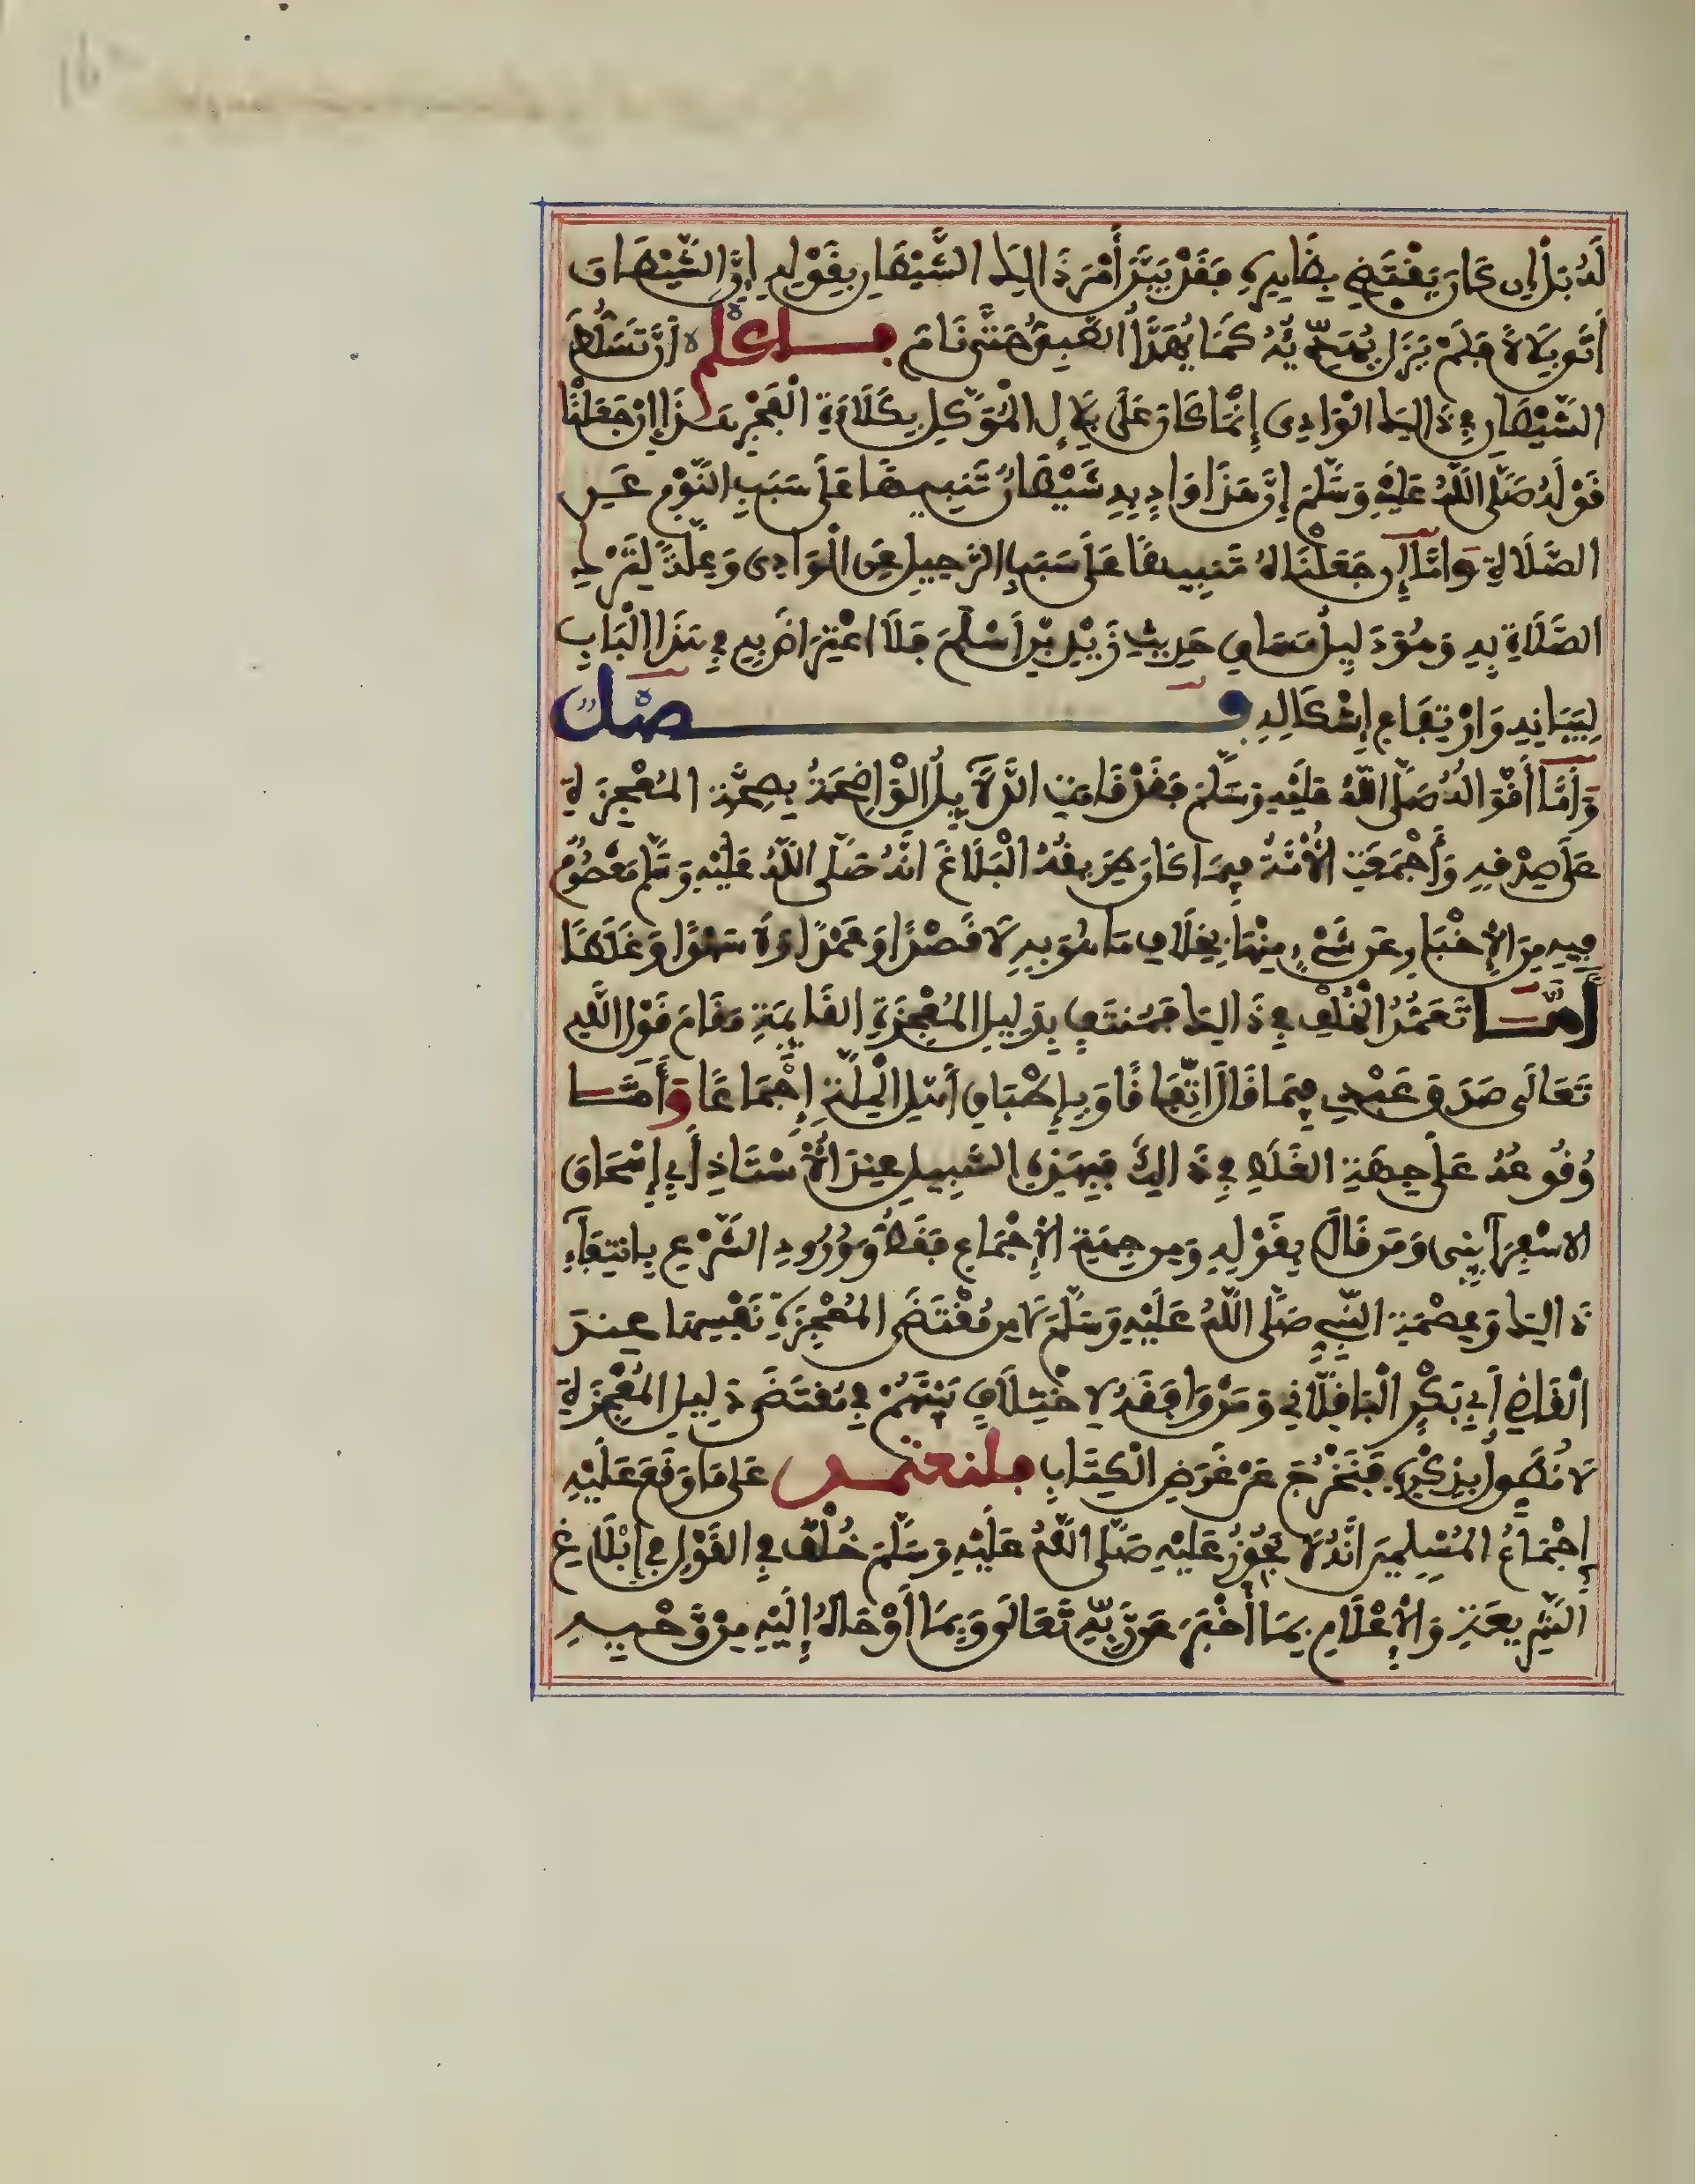 لَهُ بَلْ إِن كَانَ يَقْتَضِي ظَاهِرِهِ فَقَدْ بَيَّنَ أَمْرَ ذَالِكَ الشَّيْطَانِ بِقَوْلِهِ إِنَّ الشَّيْطَانَ
أَتَى بِلَالاً فَلَمْ يَزَلْ يُهَدِّئُهُ كَمَا يُهَدَّأُ الصَّبِيُّ حَتَّى نَامَ فاعلم أَنَّ تَسَلُّطَ
الشَّيْطَانِ فِي ذَالِكَ الْوَادِي إِنَّمَا كَانَ عَلَى بِلَالِ الْمُوَكِّلِ بِكَلَاءَةِ الْفَجْرِ هَذَا إِنْ جَعَلْنَا
قَوْلَهُ صَلَّى اللَّهُ عَلَيْهِ وَسَلَّمَ إِنَّ هَذَا وَادٍ بِهِ شَيْطَانٌ تَنبِيهًا عَلَى سَبَبِ النَّوْمِ عَنِ
الصَّلَاةِ وَامَّا إِن جَعَلْنَاهُ تَنبِيهًا عَلَى سَبَبِ الرَّحِيلِ عَنِ الْوَادِي وَعِلَّةً لِتَرْكِ
الصَّلَاةِ بِهِ وَهُوَ دَلِيلُ مَسَاقِ حَدِيثِ زَيْدِ بْنِ أَسْلَمَ فَلَا اعْتِرَاضَ بِهِ فِي هَذَا الْبَابِ
لِبَيَانِهِ وَارْتِفَاعِ إِشْكَالِهِ فصل
وَأَمَّا أَقْوَالُهُ صَلَّى اللَّهُ عَلَيْهِ وَسَلَّمَ فَقَدْ قَامَتِ الدَّلَائِلُ الْوَاضِحَةُ بِصِحَّةِ الْمُعْجِزَةِ
عَلَى صِدْقِهِ وَأَجْمَعَتِ الْأُمَّةُ فِيمَا كَانَ طَرِيقُهُ الْبَلَاغَ أَنَّهُ صَلَّى اللَّهُ عَلَيْهِ وَسَلَّمَ مَعْصُومٌ
فِيهِ مِنَ الْإِخْبَارِ عَن شَيْءٍ مِنْهَا بِخِلَافِ مَا هُوَ بِهِ لَا قَصْدًا وَعَمْدًا وَلَا سَهْوًا وَغَلَطًا
أَمَّا تَعَمُّدُ الْخُلْفِ فِي ذَالِكَ فَمُنتَفٍ بِدَلِيلِ الْمُعْجِزَةِ الْقَائِمَةِ مَقَامَ قَوْلِ اللَّهِ
تَعَالَى صَدَقَ عَبْدِي فِيمَا قَالَ اتِّفَاقًا وَبِإِطْبَاقِ أَهْلِ الْمِلَّةِ إِجْمَاعًا وَأَمَّا
وُقُوعُهُ عَلَى جِهَةِ الْغَلَطِ فِي ذَالِكَ فَبِهَذِهِ السَّبِيلِ عِندَ الْأُسْتَاذِ أَبِي إِسْحَاقَ
الاسْفِرَآيِينِي وَمَن قَالَ بِقَوْلِهِ وَمِن جِهَةِ الْإِجْمَاعِ فَقَطْ وَوُرُودِ الشَّرْعِ بِانتِفَآءِ
ذَالِكَ وَعِصْمَةِ النَّبِيِّ صَلَّى اللَّهُ عَلَيْهِ وَسَلَّمَ لَا مِن مُقْتَضَى الْمُعْجِزَةِ نَفْسِهَا عِندَ
الْقَاضِي أَبِي بَكْرٍ الْبَاقِلَّانِي وَمَنْ وَافَقَهُ لِاخْتِلَافٍ بَيْنَهُمْ فِي مُقْتَضَى دَلِيلِ الْمُعْجِزَةِ
لَا نُطَوِّلُ بِذِكْرِهِ فَنَخْرُجَ عَنْ غَرَضِ الْكِتَابِ فلنعتمد عَلَى مَا وَقَعَ عَلَيْهِ
إِجْمَاعُ الْمُسْلِمِينَ أَنَّهُ لَا يَجُوزُ عَلَيْهِ صَلَّى اللَّهُ عَلَيْهِ وَسَلَّمَ خُلْفٌ فِي الْقَوْلِ فِي إِبْلَاغِ
الشَّرِيعَةِ وَالْإِعْلَامِ بِمَا أَخْبَرَ عَن رَّبِّهِ تَعَالَى وَبِمَا أَوْحَاهُ إِلَيْهِ مِنْ وَّحْيِهِ